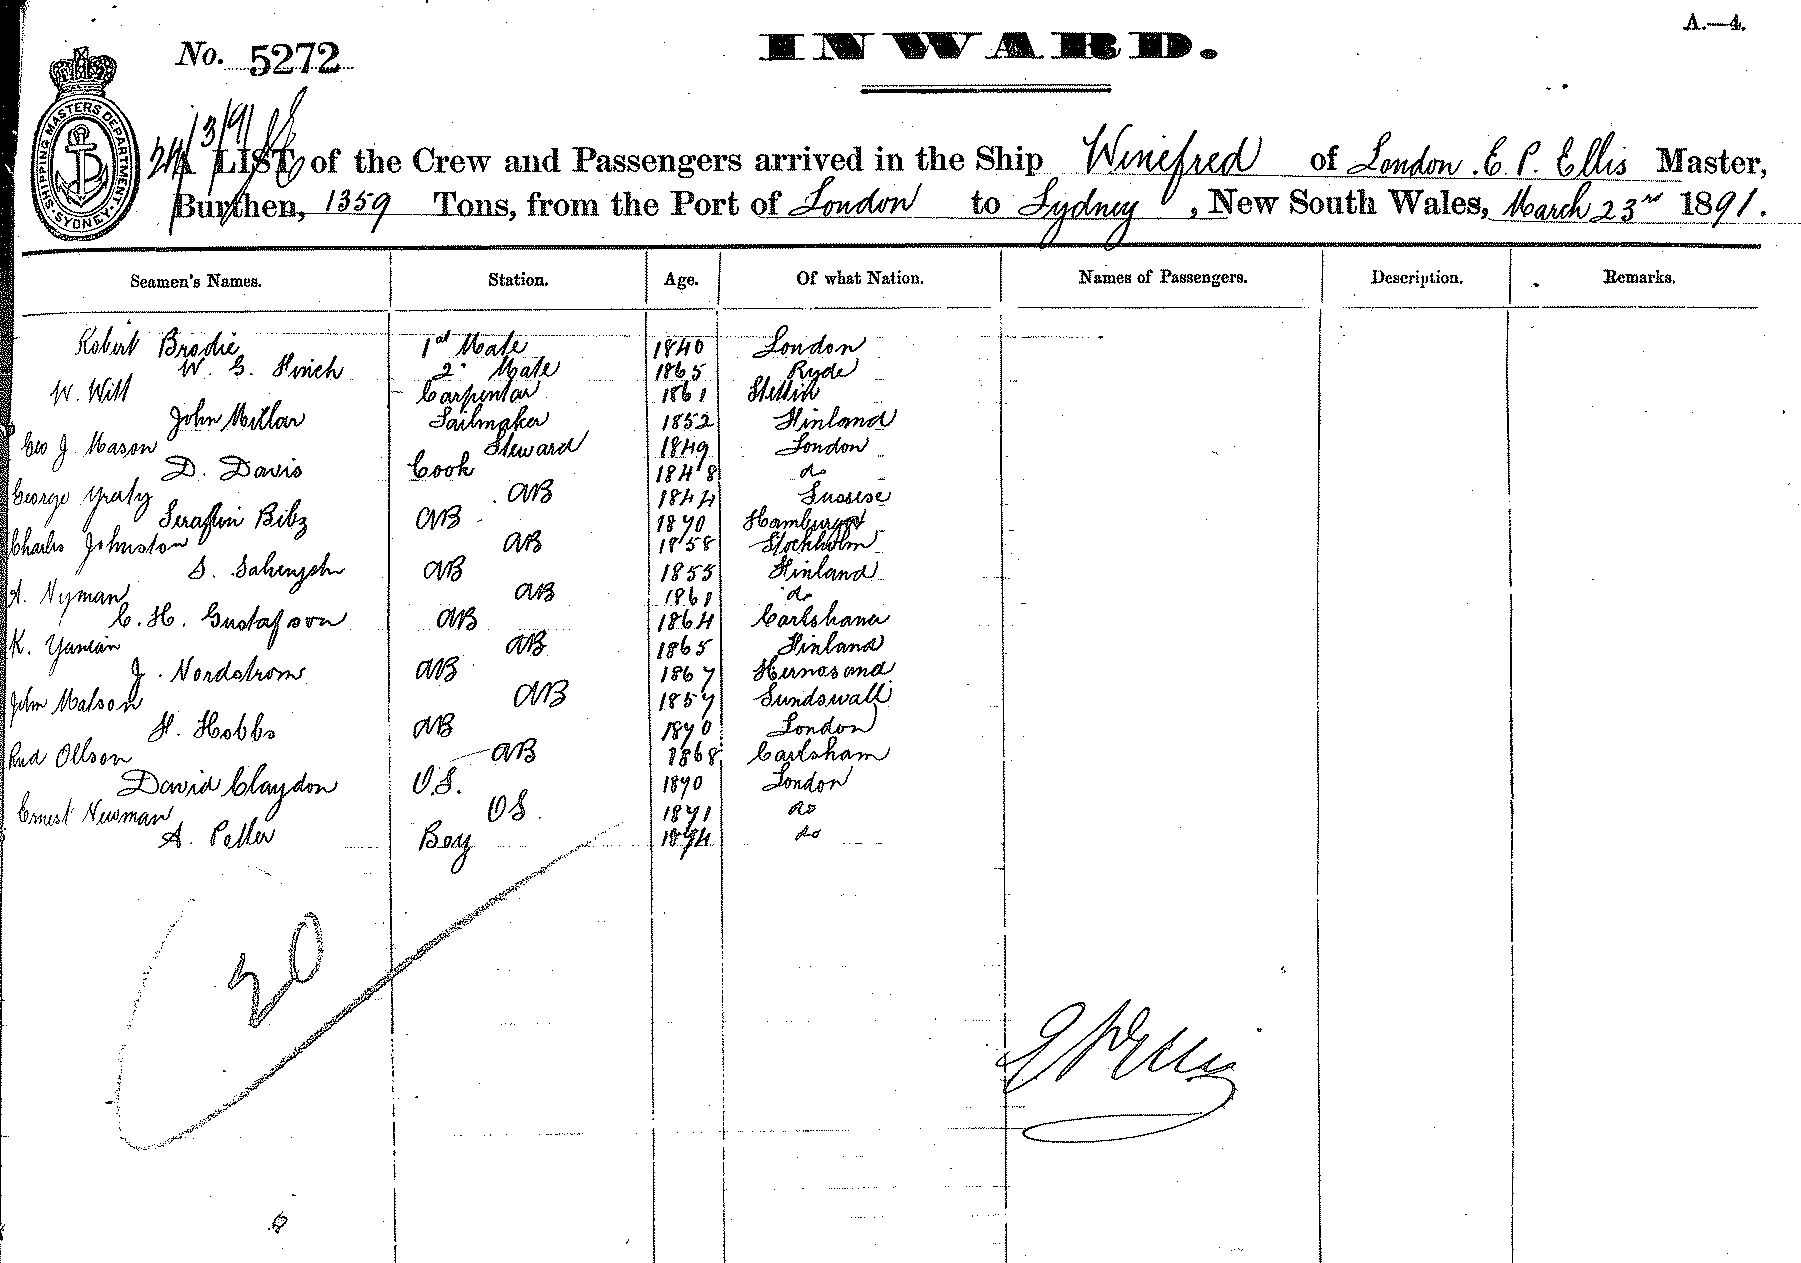 A.—4.
No. 5272
INWARD.
SHIPPING MASTERS DEPARTMENT. SYDNEY.
24/3/91
A LIST of the Crew and Passengers arrived in the Ship Winefred of London. E. P. Ellis Master,
Burthen, 1359 Tons, from the Port of London to Sydney, New South Wales, March 23rd 1891.
Seamen's Names. Station. Age. Of what Nation. Names of Passengers. Description. Remarks.
Robert Brodie 1st Mate 1840 London
W. G. Hinch 2 Mate 1865 Ryde
W. Witt Carpenter 1861 Stettin
John Millar Sailmaker 1852 Finland
Geo J. Mason Steward 1849 London
D. Davis Cook 1848 do
George AB 1844 Sussex
Bibz AB 1870 Hamburg
Charles Johnston AB 1858 Stockholm
S. AB 1855 Finland
A. Nyman AB 1861 do
C. H. Gustafson AB 1864 Carlshana
K. AB 1865 Finland
J. Nordstrom AB 1867 Hernosand
John Matson AB 1857 Sundswall
H. Hobbs AB 1870 London
Ollson AB 1868 Carlsham
David Claydon O.S. 1870 London
Ernest Newman OS 1871 do
A. Boy 1874 do
20
E P Ellis